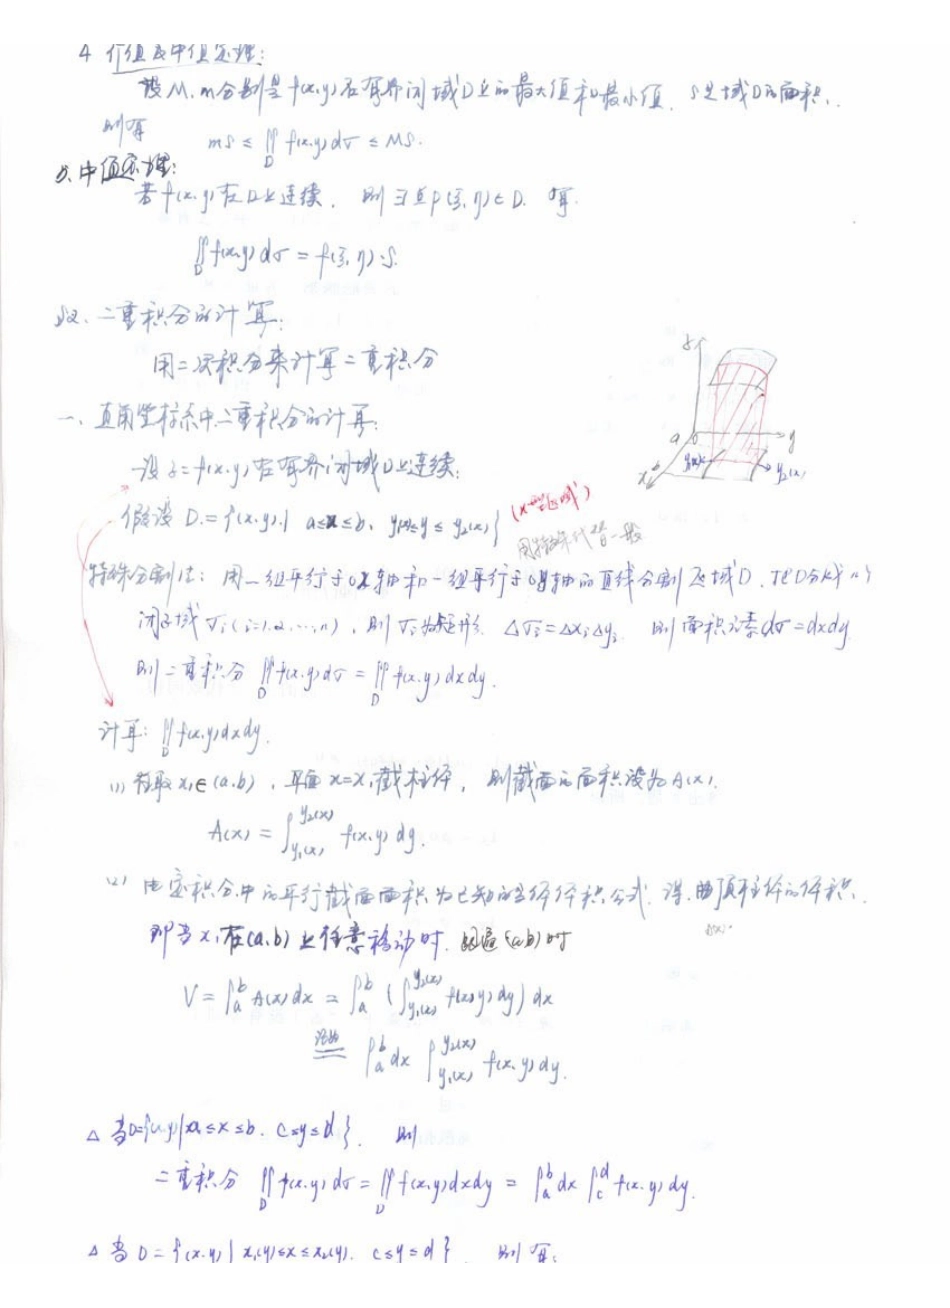 4 介值及中值定理:
设 M, m 分别是 f(x,y) 在有界闭域 D 上的最大值和最小值, S 是域 D 的面积,
则有 mS ≤ ∬_D f(x,y)dσ ≤ MS.
5. 中值定理:
若 f(x,y) 在 D 上连续, 则 ∃点 P(ξ,η)∈D. 有
∬_D f(x,y)dσ = f(ξ,η)·S.
§2. 二重积分的计算:
用二次积分来计算二重积分
一、直角坐标系中二重积分的计算:
设 z=f(x,y) 在有界闭域 D 上连续;
假设 D={(x,y) | a≤x≤b, y₁(x)≤y≤y₂(x)} (x-型区域)
用特殊代替一般
z
a 0 y
x y₁(x) y₂(x)
特殊分割法: 用一组平行于 ox 轴和一组平行于 oy 轴的直线分割区域 D, 把 D 分成 n 个
闭区域 σᵢ (i=1,2,…,n), 则 σᵢ 为矩形. Δσᵢ=Δxᵢ Δyᵢ. 则面积元素 dσ=dxdy
则二重积分 ∬_D f(x,y)dσ = ∬_D f(x,y)dxdy.
计算: ∬_D f(x,y)dxdy.
(1) 若取 x₁∈(a,b), 平面 x=x₁ 截柱体, 则截面的面积设为 A(x).
A(x) = ∫_{y₁(x)}^{y₂(x)} f(x,y)dy.
(2) 由定积分中的平行截面面积为已知的立体体积公式, 得曲顶柱体的体积.
A(x).
即当 x₁ 在 (a,b) 上任意移动时, 跑遍 (a,b) 时
V = ∫_a^b A(x)dx = ∫_a^b (∫_{y₁(x)}^{y₂(x)} f(x,y)dy) dx
记为 = ∫_a^b dx ∫_{y₁(x)}^{y₂(x)} f(x,y)dy.
△ 当 D={(x,y) | a≤x≤b, c≤y≤d}, 则
二重积分 ∬_D f(x,y)dσ = ∬_D f(x,y)dxdy = ∫_a^b dx ∫_c^d f(x,y)dy.
△ 当 D={(x,y) | x₁(y)≤x≤x₂(y), c≤y≤d}, 则有: